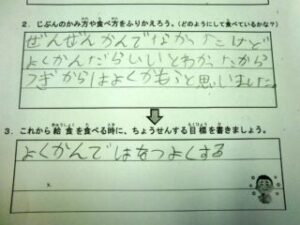 2. じぶんのかみ方や食べ方をふりかえろう。(どのようにして食べているかな?)
ぜんぜんかんでなかったけど
よくかんだらいいとわかったから
つぎからはよくかもうと思いました。
3. これから給食を食べる時に、ちょうせんする目標を書きましょう。
よくかんではをつよくする